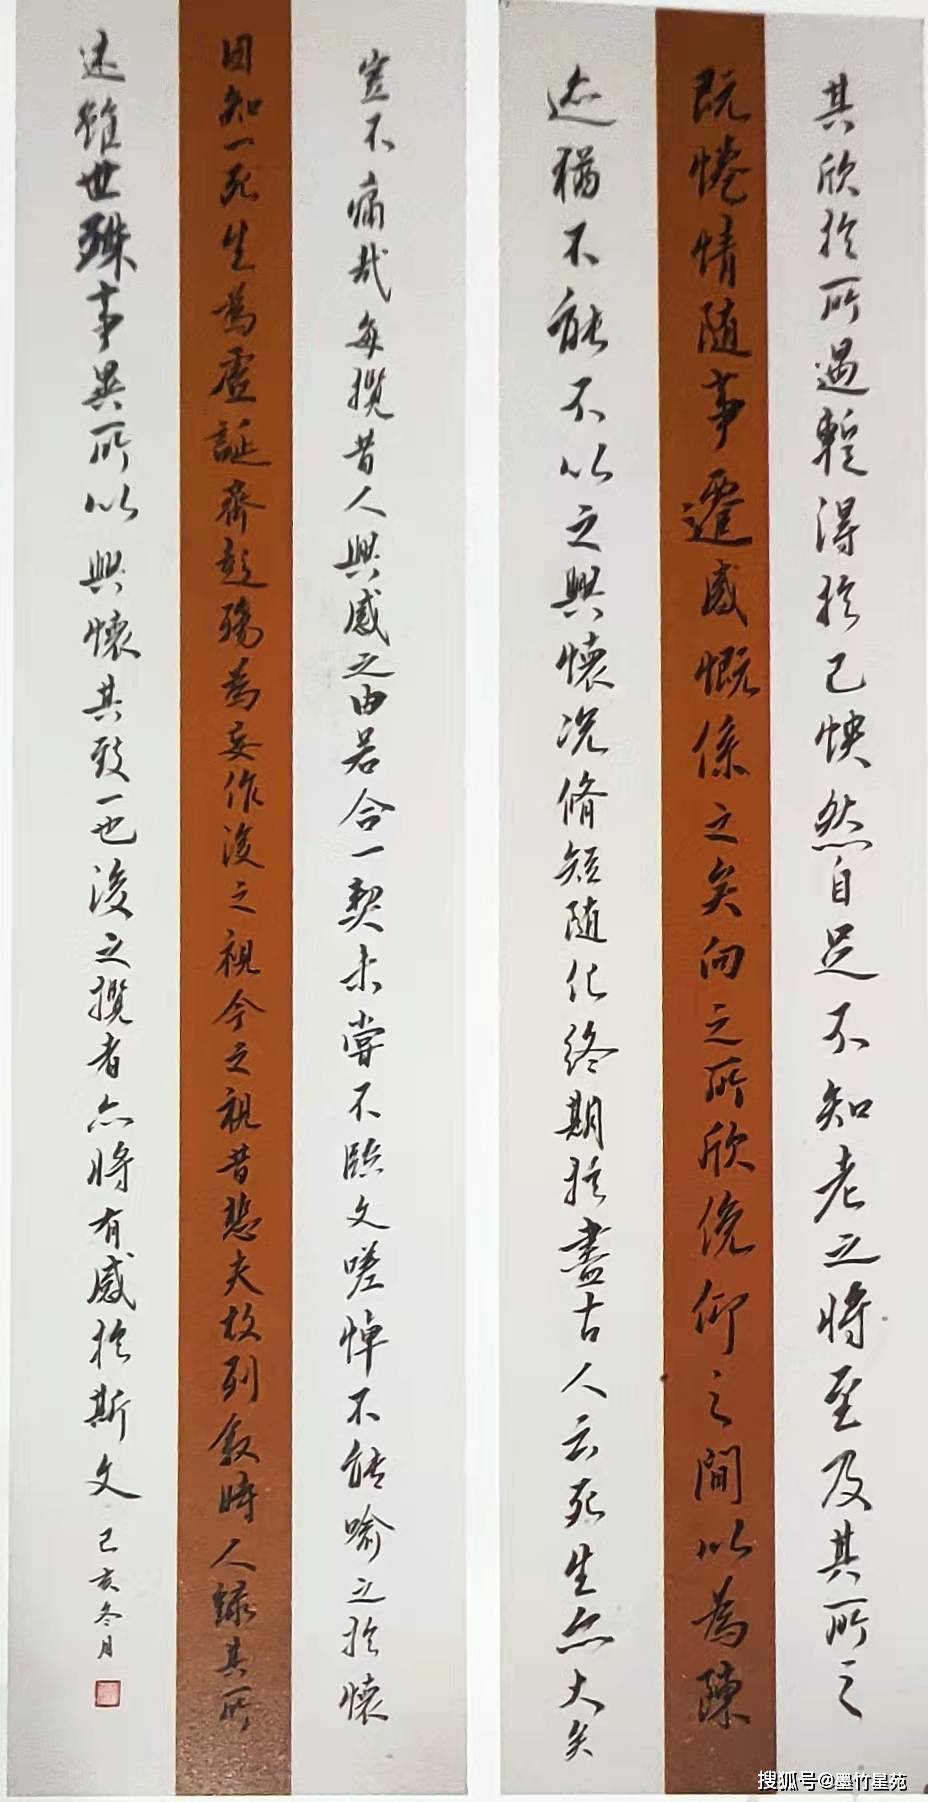 其欣於所遇暫得於己怏然自足不知老之將至及其所之
既惓情隨事遷感慨係之矣向之所欣俛仰之間以為陳
迹猶不能不以之興懷況脩短隨化終期於盡古人云死生亦大矣
豈不痛哉每攬昔人興感之由若合一契未嘗不臨文嗟悼不能喻之於懷
固知一死生為虛誕齊彭殤為妄作後之視今之視昔悲夫故列敘時人錄其所
述雖世殊事異所以興懷其致一也後之攬者亦將有感於斯文
己亥冬月
搜狐号@墨竹星苑